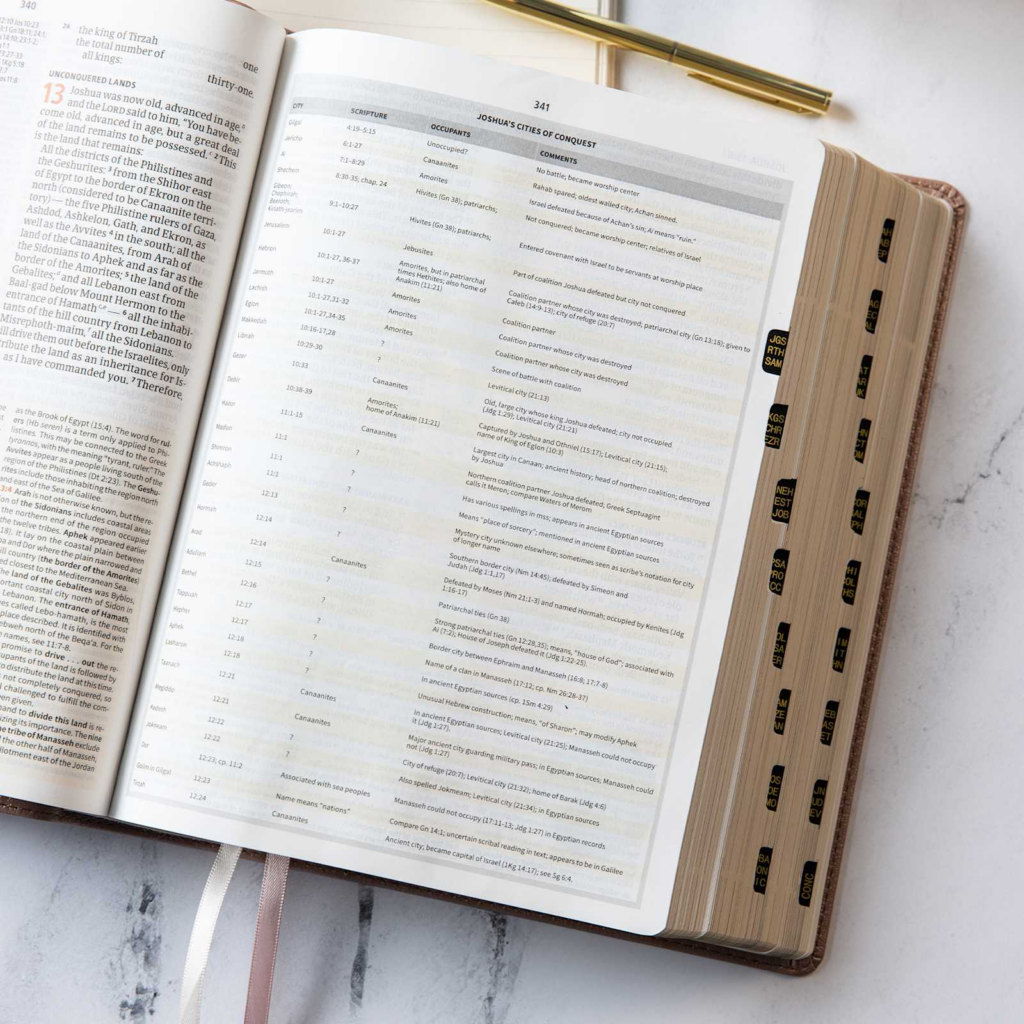 340
24 the king of Tirzah one
the total number of
all kings: thirty-one.
UNCONQUERED LANDS
13 Joshua was now old, advanced in age,
and the LORD said to him, "You have be-
come old, advanced in age, but a great deal
of the land remains to be possessed. 2 This
is the land that remains:
All the districts of the Philistines and
the Geshurites: 3 from the Shihor east
of Egypt to the border of Ekron on the
north (considered to be Canaanite terri-
tory) — the five Philistine rulers of Gaza,
Ashdod, Ashkelon, Gath, and Ekron, as
well as the Avvites 4 in the south; all the
land of the Canaanites, from Arah of
the Sidonians to Aphek and as far as the
border of the Amorites; 5 the land of the
Gebalites; and all Lebanon east from
Baal-gad below Mount Hermon to the
entrance of Hamath — 6 all the inhabi-
tants of the hill country from Lebanon to
Misrephoth-maim, all the Sidonians.
drive them out before the Israelites, only
tribute the land as an inheritance for Is-
as I have commanded you. 7 Therefore,
as the Brook of Egypt (15:4). The word for rul-
ers (Hb seren) is a term only applied to Phi-
listines. This may be connected to the Greek
tyrannos, with the meaning "tyrant, ruler." The
Avvites appear as a people living south of the
region of the Philistines (Dt 2:23). The Geshu-
rites include those inhabiting the region north
and east of the Sea of Galilee.
Arah is not otherwise known, but the re-
of the Sidonians includes coastal areas
the northern end of the region occupied
the twelve tribes. Aphek appeared earlier
It lay on the coastal plain between
and Dor where the plain narrowed and
hill country (the border of the Amorites)
closest to the Mediterranean Sea.
The land of the Gebalites was Byblos,
important coastal city north of Sidon in
Lebanon. The entrance of Hamath,
called Lebo-hamath, is the most
place described. It is identified with
Lebweh north of the Beqa'a. For the
names, see 11:7-8.
promise to drive . . . out the re-
occupants of the land is followed by
to distribute the land at this time.
not completely conquered, so
challenged to fulfill the com-
given.
and to divide this land is re-
emphasizing its importance. The nine
the tribe of Manasseh exclude
the other half of Manasseh,
allotment east of the Jordan
341
JOSHUA'S CITIES OF CONQUEST
CITY SCRIPTURE OCCUPANTS COMMENTS
Gilgal 4:19–5:15 Unoccupied? No battle; became worship center
Jericho 6:1-27 Canaanites Rahab spared; oldest walled city; Achan sinned.
Ai 7:1–8:29 Amorites Israel defeated because of Achan's sin; Ai means "ruin."
Shechem 8:30-35; chap. 24 Hivites (Gn 38), patriarchs; Not conquered; became worship center; relatives of Israel
Gibeon; 9:1–10:27 Hivites (Gn 38), patriarchs; Entered covenant with Israel to be servants at worship place
Chephirah;
Beeroth;
Kiriath-jearim
Jerusalem 10:1-27 Jebusites Part of coalition Joshua defeated but city not conquered
Hebron 10:1-27, 36-37 Amorites, but in patriarchal Coalition partner whose city was destroyed; patriarchal city (Gn 13:18); given to
times Hethites; also home of Caleb (14:9-13); city of refuge (20:7)
Anakim (11:21)
Jarmuth 10:1-27 Amorites Coalition partner
Lachish 10:1-27,31-32 Amorites Coalition partner whose city was destroyed
Eglon 10:1-27,34-35 Amorites Coalition partner whose city was destroyed
Makkedah 10:16-17,28 ? Scene of battle with coalition
Libnah 10:29-30 ? Levitical city (21:13)
Gezer 10:33 Canaanites Old, large city whose king Joshua defeated; city not occupied
(Jdg 1:29); Levitical city (21:21)
Debir 10:38-39 Amorites; Captured by Joshua and Othniel (15:17); Levitical city (21:15);
home of Anakim (11:21) name of King of Eglon (10:3)
Hazor 11:1-15 Canaanites Largest city in Canaan; ancient history; head of northern coalition; destroyed
by Joshua
Madon 11:1 ? Northern coalition partner Joshua defeated; Greek Septuagint
calls it Meron; compare Waters of Merom
Shimron 11:1 ? Has various spellings in mss; appears in ancient Egyptian sources
Achshaph 11:1 ? Means "place of sorcery"; mentioned in ancient Egyptian sources
Geder 12:13 ? Mystery city unknown elsewhere; sometimes seen as scribe's notation for city
of longer name
Hormah 12:14 ? Southern border city (Nm 14:45); defeated by Simeon and
Judah (Jdg 1:1,17)
Arad 12:14 Canaanites Defeated by Moses (Nm 21:1-3) and named Hormah; occupied by Kenites (Jdg
1:16-17)
Adullam 12:15 ? Patriarchal ties (Gn 38)
Bethel 12:16 ? Strong patriarchal ties (Gn 12:28,35); means, "house of God"; associated with
Ai (7:2); House of Joseph defeated it (Jdg 1:22-25).
Tappuah 12:17 ? Border city between Ephraim and Manasseh (16:8; 17:7-8)
Hepher 12:17 ? Name of a clan in Manasseh (17:12; cp. Nm 26:28-37)
Aphek 12:18 ? In ancient Egyptian sources (cp. 1Sm 4:29)
Lasharon 12:18 ? Unusual Hebrew construction; means, "of Sharon"; may modify Aphek
Taanach 12:21 Canaanites In ancient Egyptian sources; Levitical city (21:25); Manasseh could not occupy
it (Jdg 1:27).
Megiddo 12:21 Canaanites Major ancient city guarding military pass; in Egyptian sources; Manasseh could
not (Jdg 1:27)
Kedesh 12:22 ? City of refuge (20:7); Levitical city (21:32); home of Barak (Jdg 4:6)
Jokneam 12:22 ? Also spelled Jokmeam; Levitical city (21:34); in Egyptian sources
Dor 12:23; cp. 11:2 Associated with sea peoples Manasseh could not occupy (17:11-13; Jdg 1:27) in Egyptian records
Goiim in Gilgal 12:23 Name means "nations" Compare Gn 14:1; uncertain scribal reading in text; appears to be in Galilee
Tirzah 12:24 Canaanites Ancient city, became capital of Israel (1Kg 14:17); see Sg 6:4.
JGS
RTH
SAM
KGS
CHR
EZR
NEH
EST
JOB
PSA
PRO
CONC